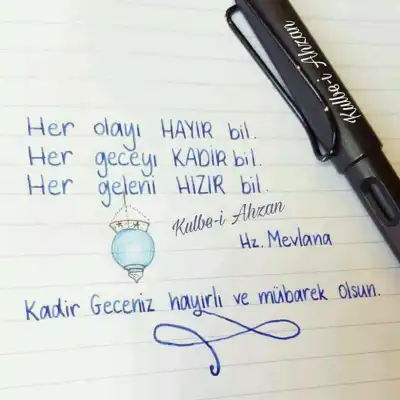 Kulbe-i Ahzan
Her olayı HAYIR bil.
Her geceyi KADİR bil.
Her geleni HIZIR bil.
Kulbe-i Ahzan
Hz. Mevlana
Kadir Geceniz hayırlı ve mübarek olsun.